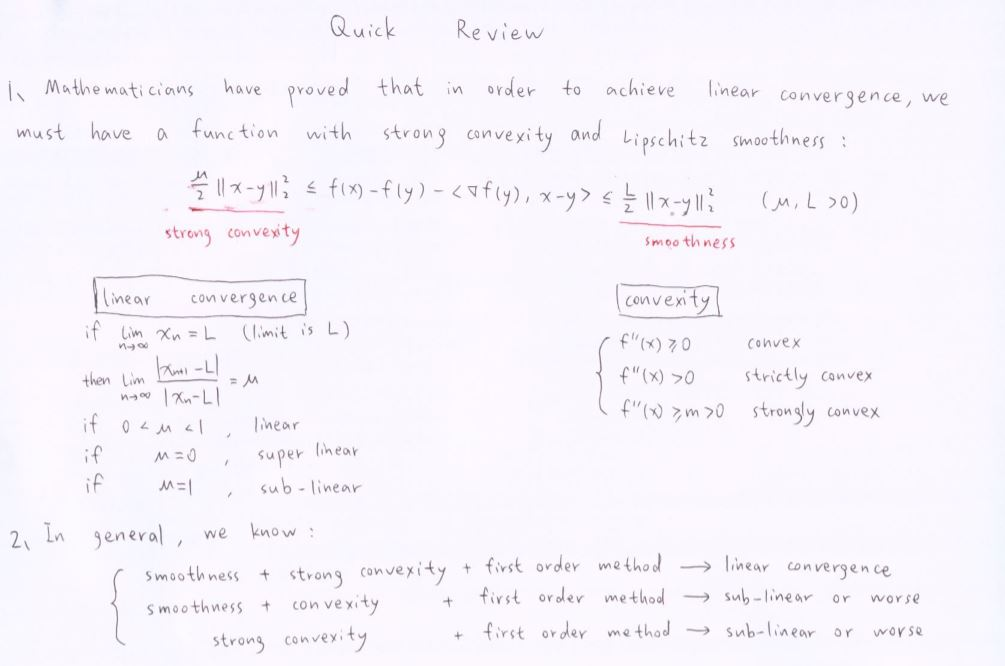 Quick Review
1、Mathematicians have proved that in order to achieve linear convergence, we
must have a function with strong convexity and Lipschitz smoothness :
μ/2 ||x-y||₂² ≤ f(x) - f(y) - <∇f(y), x-y> ≤ L/2 ||x-y||₂² (μ, L >0)
strong convexity smoothness
linear convergence
if lim n→∞ xn = L (limit is L)
then lim n→∞ |xn+1 - L| / |xn - L| = μ
if 0 < μ < 1 , linear
if μ = 0 , super linear
if μ = 1 , sub-linear
convexity
f''(x) ≥ 0 convex
f''(x) > 0 strictly convex
f''(x) ≥ m > 0 strongly convex
2、In general, we know :
smoothness + strong convexity + first order method → linear convergence
smoothness + convexity + first order method → sub-linear or worse
strong convexity + first order method → sub-linear or worse